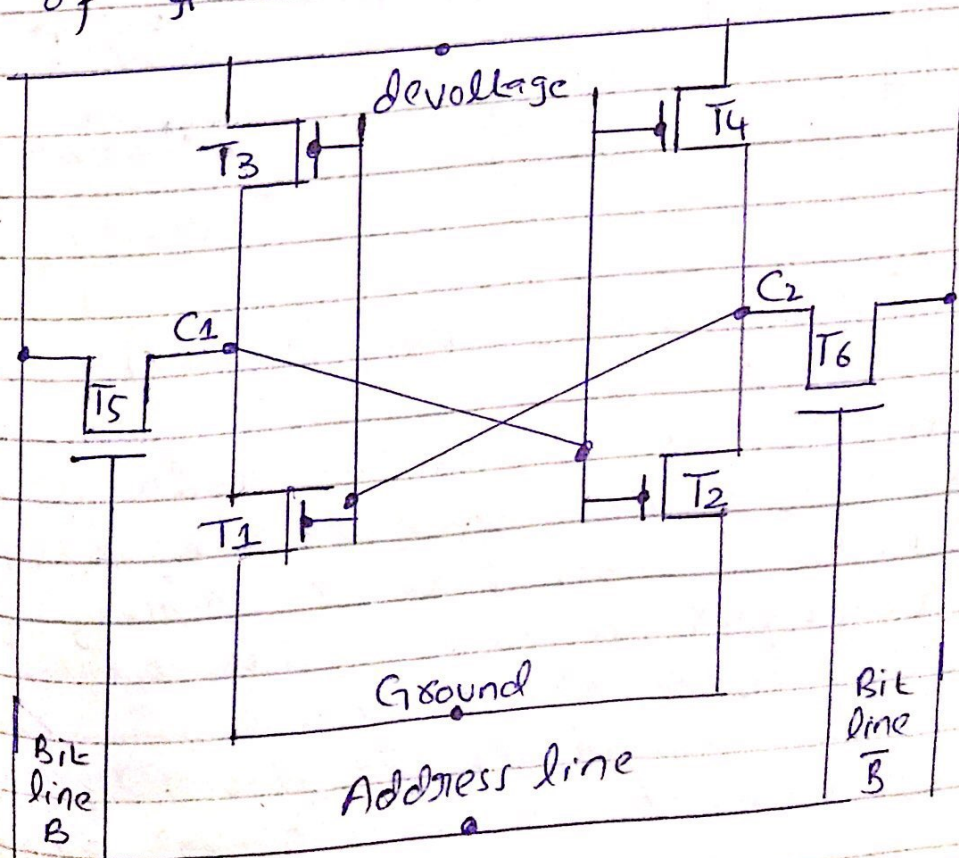 of
devoltage
T3
T4
C1
C2
T5
T6
T1
T2
Ground
Bit
line
B
Bit
line
B̅
Address line